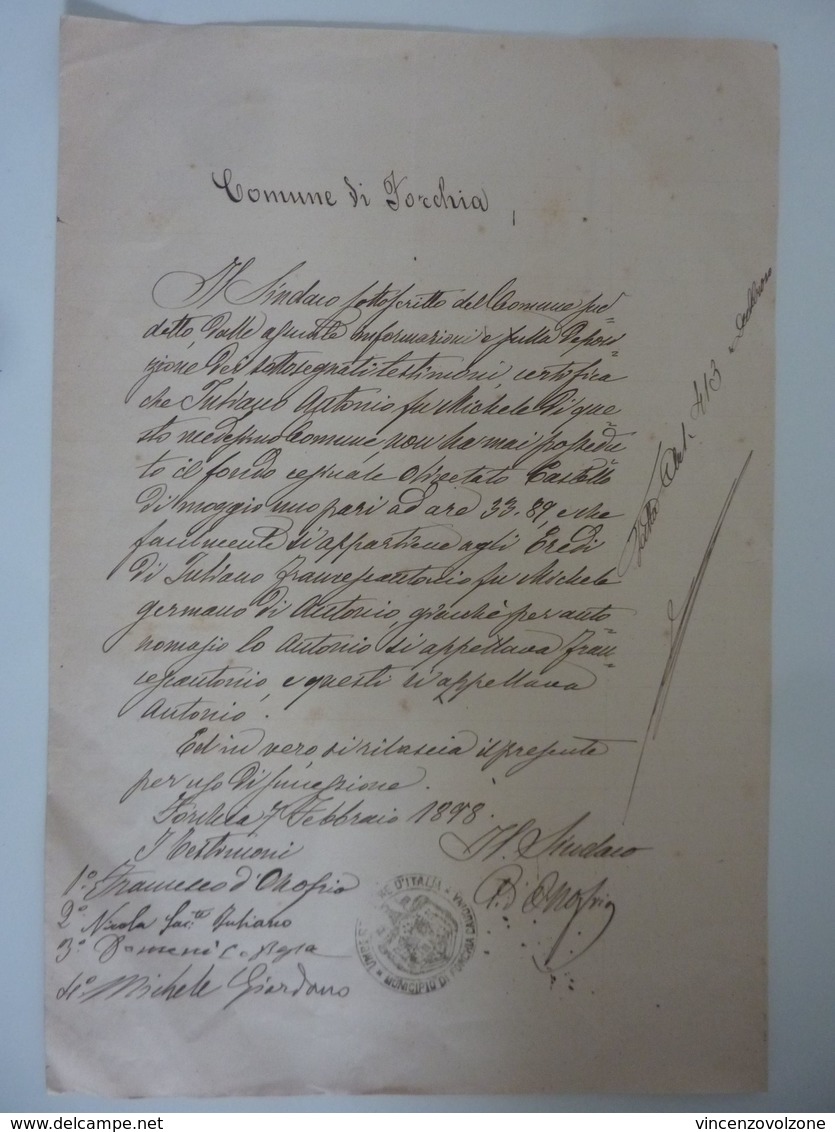 Comune di Forchia
Il Sindaco sottoscritto del Comune sud„
detto, dalle assunte informazioni e sulla deposi„
zione dei sottosegnati testimoni, certifica
che Iuliano Antonio fu Michele di que„
sto medesimo Comune, non ha mai possedu„
to il fondo censuale Castello
di moggio uno pari ad are 33.89, e che
facilmente si appartiene agli Eredi
di Iuliano Francesantonio fu Michele
germano di Antonio, giacchè per auto„
nomasio lo Antonio si appellava Fran„
cesantonio, e questi si appellava
Antonio.
Ed in vero si rilascia il presente
per uso di successione.
Forchia 7 Febbraio 1898.
I Testimoni
Il Sindaco
1º Francesco d'Onofrio
P. d'Onofrio
2º Nicola Iuliano
3º
4º Michele Giordano
Art. 413
D'ITALIA
MUNICIPIO DI FORCHIA
delcampe.net
vincenzovolzone